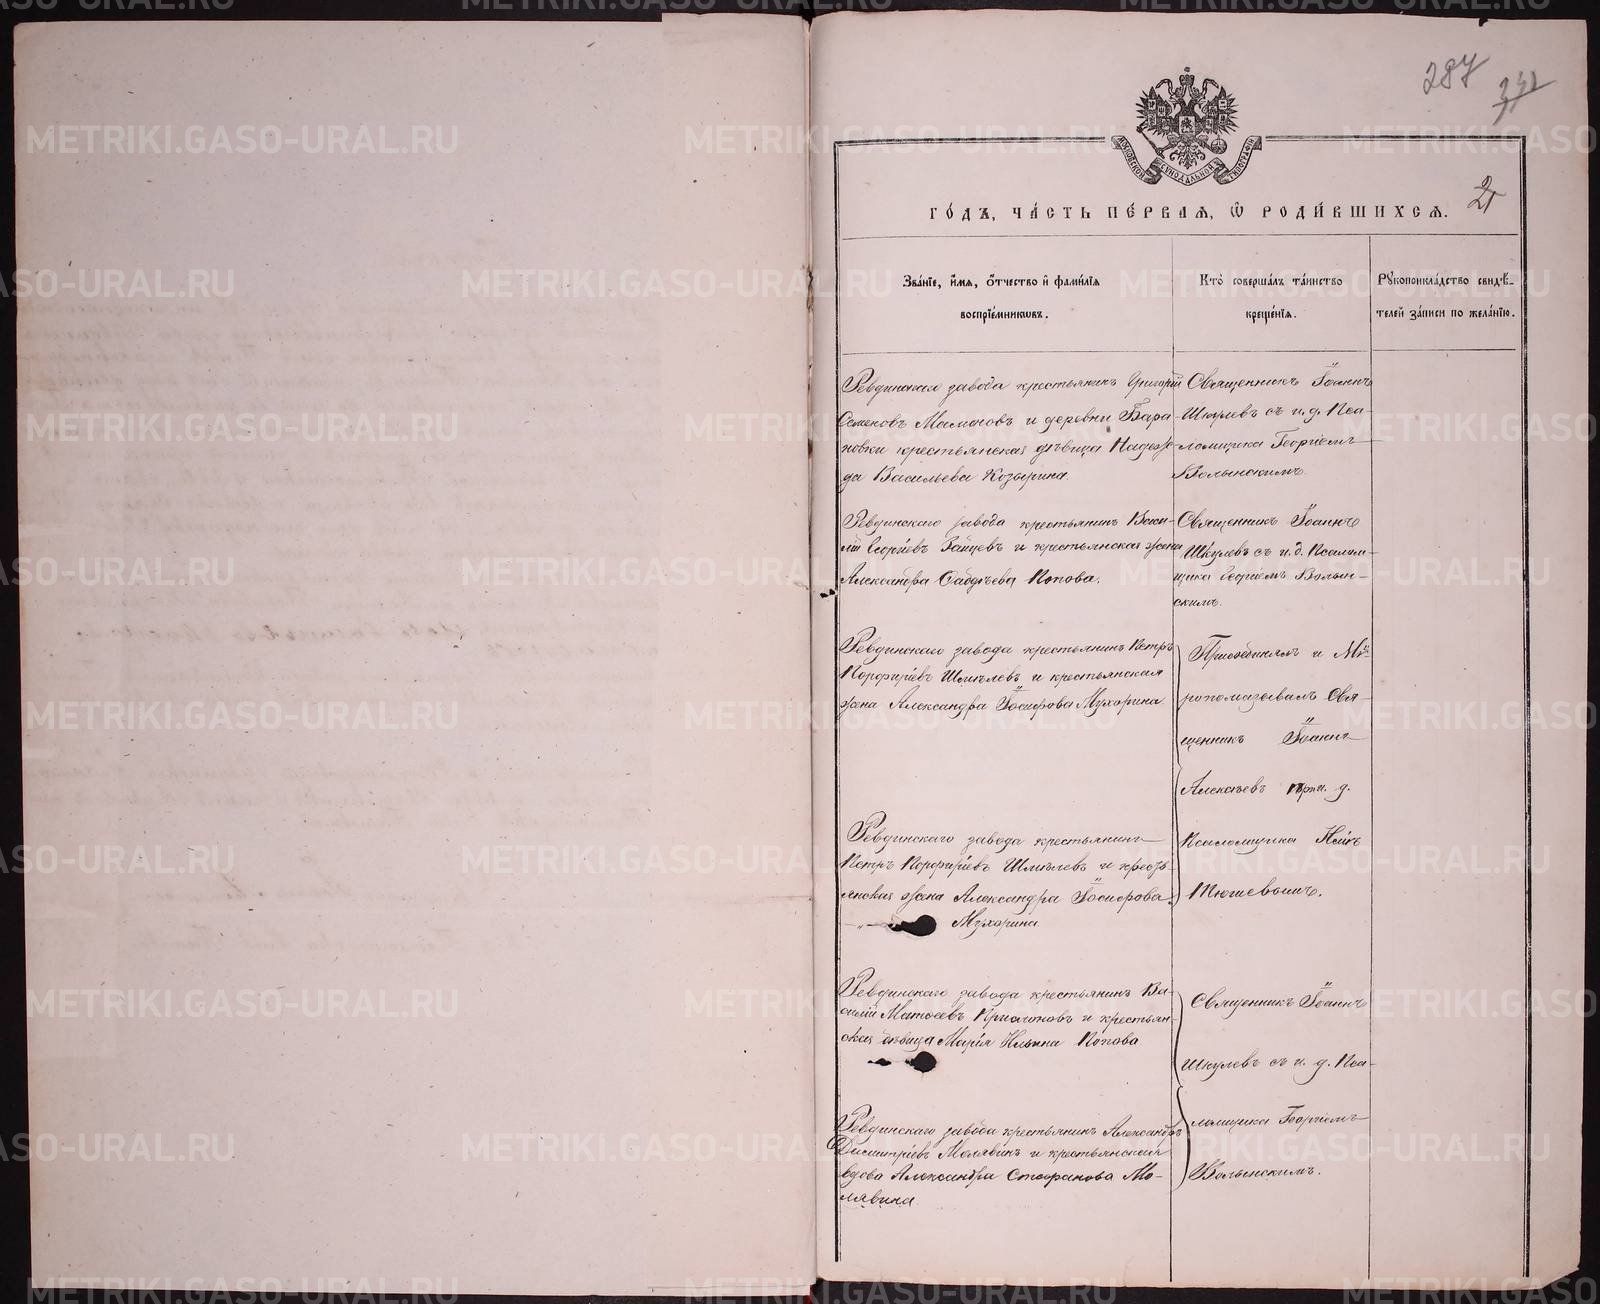 287
2
МОСКОВСКОЙ СѴНОДАЛЬНОЙ ТИПОГРАФІИ
ГО́ДЪ, ЧА́СТЬ ПЕ́РВАѦ, Ѽ РОДИ́ВШИХСѦ.
Зва́нїе, и҆́мѧ, ѻ҆́тчество и҆ фами́лїѧ
воспрїе́мникѡвъ.
Кто̀ соверша́лъ та́инство
креще́нїѧ.
Рꙋкоприкла́дство свидѣ́-
телей за́писи по жела́нїю.
Ревдинскаго завода крестьянинъ Григорій
Семеновъ Мамоновъ и деревни Бара-
новки крестьянская дѣвица Надеж-
да Васильева Козырина.
Священникъ Іоаннъ
Шкулевъ съ и. д. Пса-
ломщика Георгіемъ
Волынскимъ.
Ревдинскаго завода крестьянинъ Васи-
лій Георгіевъ Зайцевъ и крестьянская жена
Александра Фаддѣева Попова.
Священникъ Іоаннъ
Шкулевъ съ и. д. Псалом-
щика Георгіемъ Волын-
скимъ.
Ревдинскаго завода крестьянинъ Петръ
Порфиріевъ Шмелевъ и крестьянская
жена Александра Іосифова Мухорина
Присоединялъ и Мѵ-
ропомазывалъ Свя-
щенникъ Іоаннъ
Алексѣевъ при и. д.
Псаломщика
Ревдинскаго завода крестьянинъ
Петръ Порфиріевъ Шмелевъ и кресть-
янская жена Александра Іосифова
Мухорина
Ревдинскаго завода крестьянинъ Ва-
силій Матѳеевъ и крестьян-
ская дѣвица Марія Ильина Попова
Священникъ Іоаннъ
Шкулевъ съ и. д. Пса-
ломщика Георгіемъ
Волынскимъ.
Ревдинскаго завода крестьянинъ Александръ
Димитріевъ Молявинъ и крестьянская
вдова Александра Стефанова Мо-
лявина
METRIKI.GASO-URAL.RU